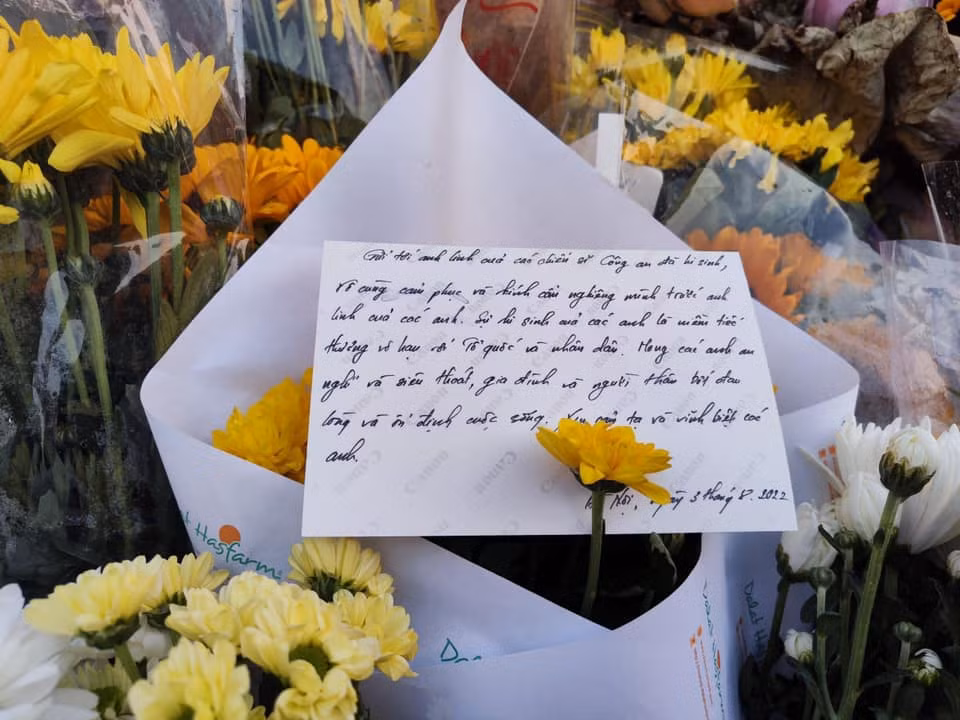 Gửi tới anh linh của các chiến sĩ Công an đã hi sinh,
Vô cùng cảm phục và kính cẩn nghiêng mình trước anh
linh của các anh. Sự hi sinh của các anh là niềm tiếc
thương vô hạn với Tổ quốc và nhân dân. Mong các anh an
nghỉ và siêu thoát, gia đình và người thân bớt đau
lòng và ổn định cuộc sống. tạ và vĩnh biệt các
anh.
Nội, 3 tháng 8. 2022
Hasfarm
Dalat